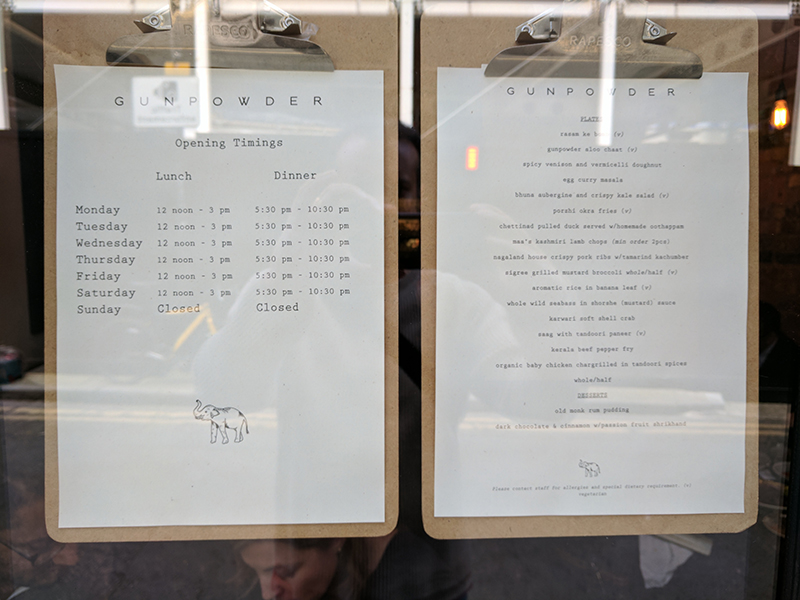 RAPESCO
GUNPOWDER
Opening Timings
Lunch Dinner
Monday 12 noon - 3 pm 5:30 pm - 10:30 pm
Tuesday 12 noon - 3 pm 5:30 pm - 10:30 pm
Wednesday 12 noon - 3 pm 5:30 pm - 10:30 pm
Thursday 12 noon - 3 pm 5:30 pm - 10:30 pm
Friday 12 noon - 3 pm 5:30 pm - 10:30 pm
Saturday 12 noon - 3 pm 5:30 pm - 10:30 pm
Sunday Closed Closed
RAPESCO
GUNPOWDER
PLATES
rasam ke (v)
gunpowder aloo chaat (v)
spicy venison and vermicelli doughnut
egg curry masala
bhuna aubergine and crispy kale salad (v)
porzhi okra fries (v)
chettinad pulled duck served w/homemade oothappam
maa's kashmiri lamb chops (min order 2pcs)
nagaland house crispy pork ribs w/tamarind kachumber
sigree grilled mustard broccoli whole/half (v)
aromatic rice in banana leaf (v)
whole wild seabass in shorshe (mustard) sauce
karwari soft shell crab
saag with tandoori paneer (v)
kerala beef pepper fry
organic baby chicken chargrilled in tandoori spices
whole/half
DESSERTS
old monk rum pudding
dark chocolate & cinnamon w/passion fruit shrikhand
Please contact staff for allergies and special dietary requirement. (v)
vegetarian